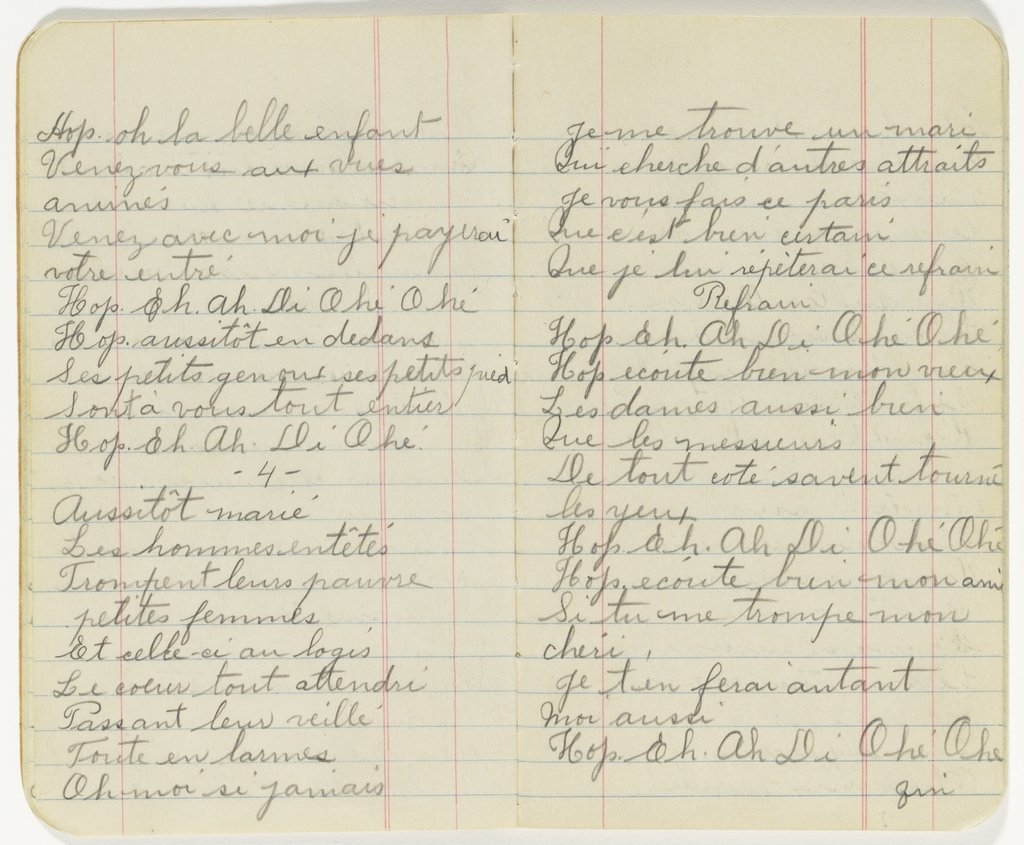 Hop. oh la belle enfant
Venez vous aux vues
animés
Venez avec moi je payerai
votre entré
Hop. Eh. Ah. Di Ohé Ohé
Hop. aussitôt en dedans
Ses petits genoux ses petits pied
Sont à vous tout entier
Hop. Eh. Ah. Di Ohé.
- 4 -
Aussitôt marié
Les hommes entêtés
Trompent leurs pauvre
petites femmes
Et celle-ci au logis
Le coeur tout attendri
Passant leur veillé
Toute en larmes
Oh moi si jamais
Je me trouve un mari
Qui cherche d'autres attraits
Je vous fais ce paris
Que c'est bien certain
Que je lui répèterai ce refrain
Refrain
Hop Eh. Ah Di Ohé Ohé
Hop écoute bien mon vieux
Les dames aussi bien
Que les messieurs
De tout coté savent tourné
les yeux
Hop. Eh. Ah Di Ohé Ohé
Hop. écoute bien mon ami
Si tu me trompe mon
chéri,
Je t'en ferai autant
Moi aussi
Hop. Eh. Ah Di Ohé Ohé
fin